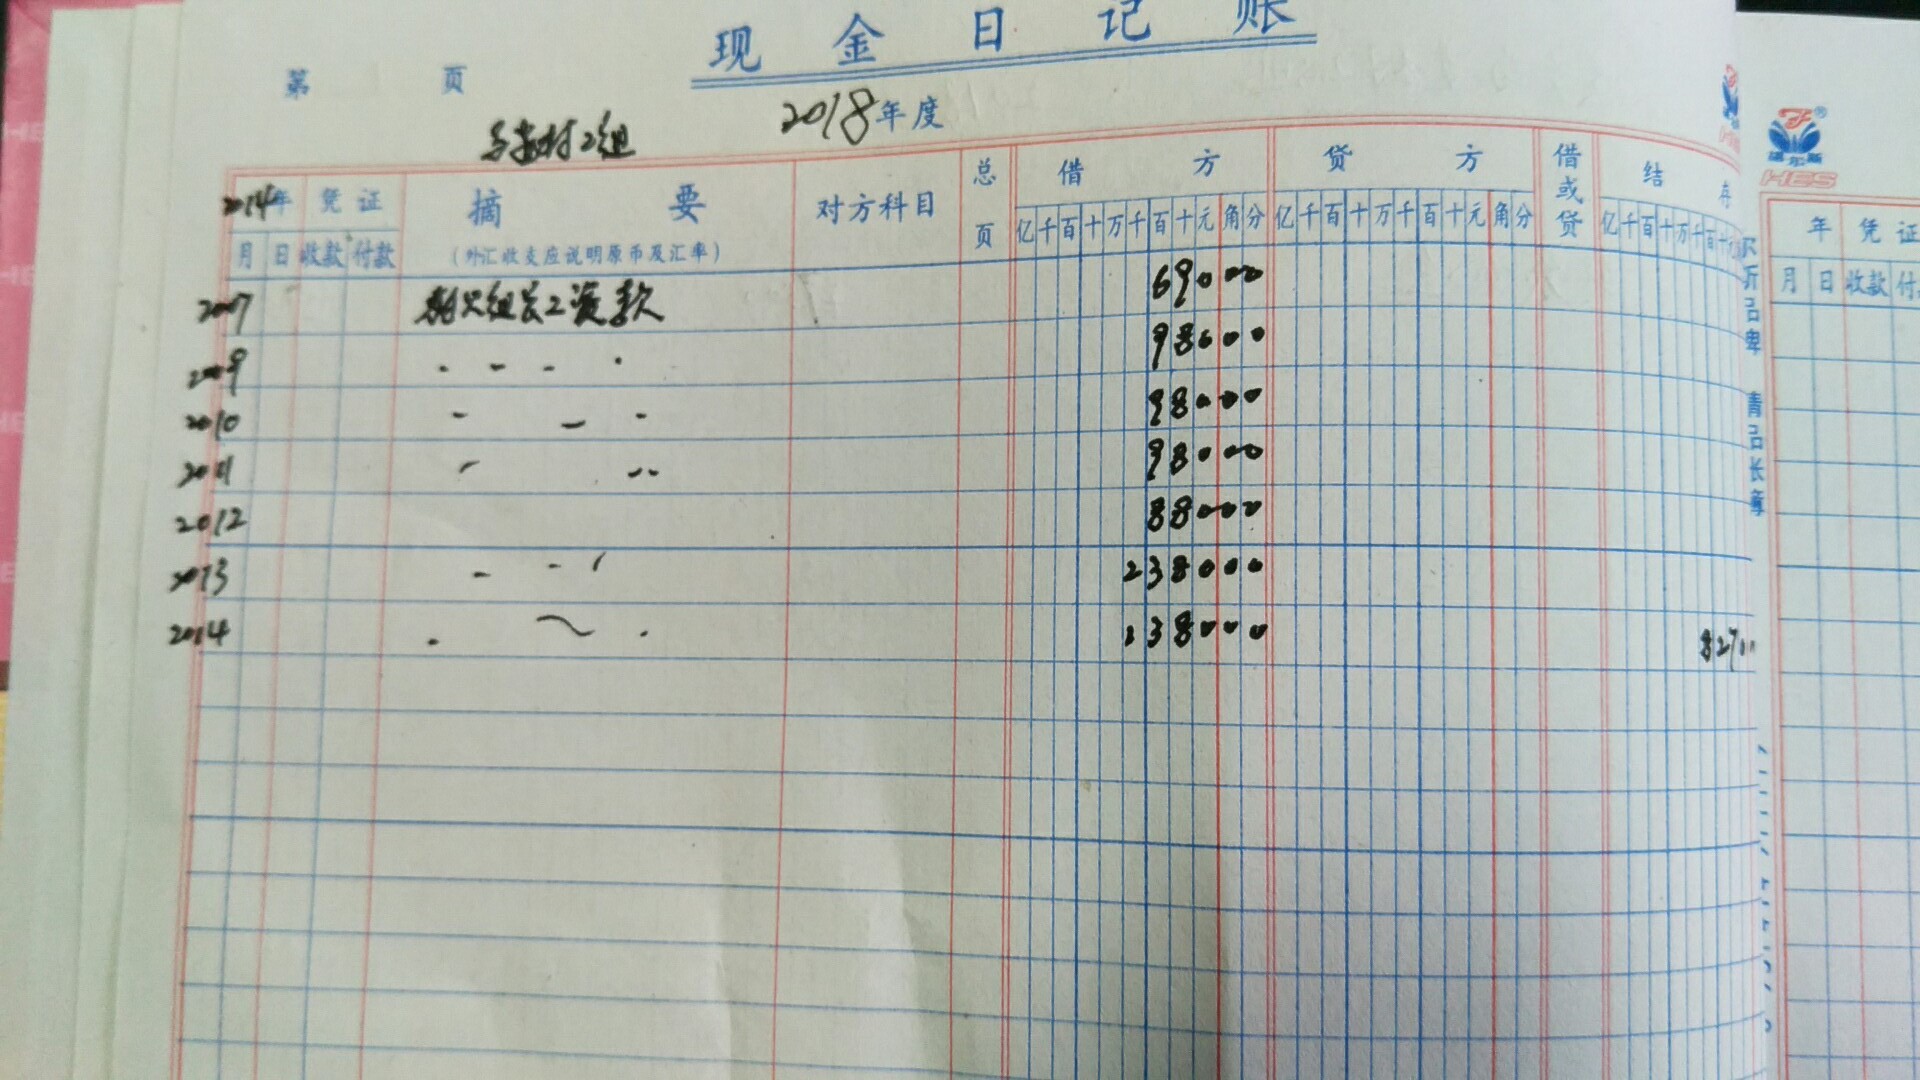 现金日记账
第 页
2018年度
村2组
2014年 凭证 摘要 对方科目 总页 借方 贷方 借或贷 结存
月 日 收款 付款 (外汇收支应说明原币及汇率) 亿千百十万千百十元角分 亿千百十万千百十元角分 亿千百十万千百十元
2007 组长工资款 69000
2009 98000
2010 98000
2011 98000
2012 88000
2013 238000
2014 238000 827
诺尔斯
HES
年 凭证
月 日 收款 付